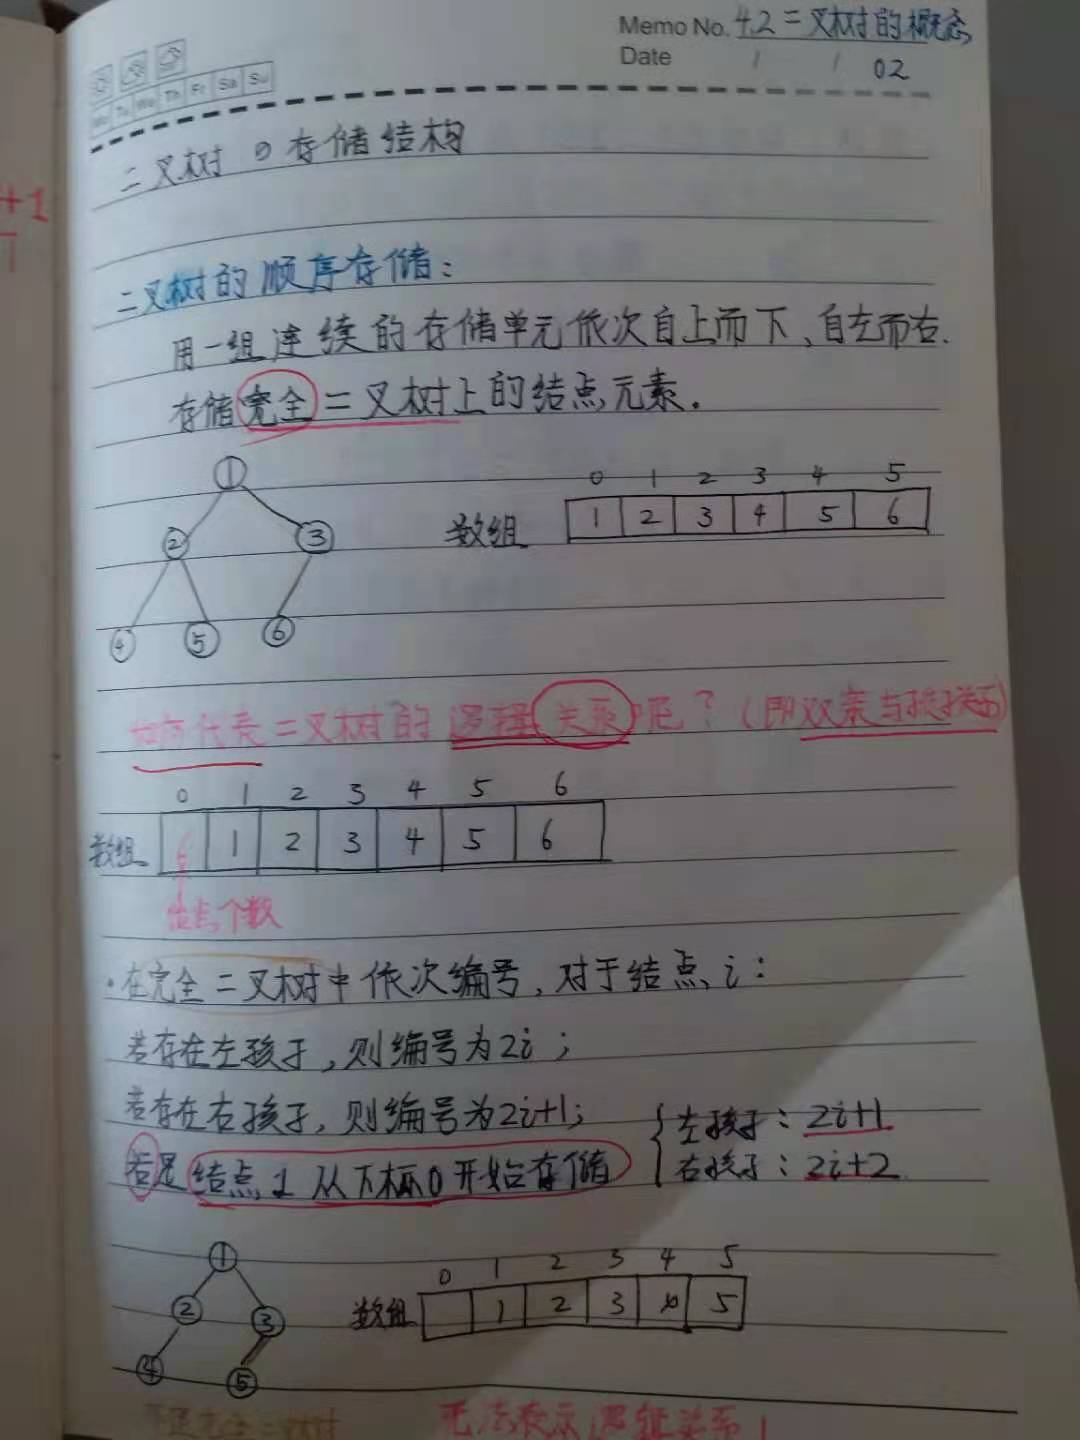 +1
Memo No. 4.2 二叉树的概念
Date / / 02
Mo Tu We Th Fr Sa Su
二叉树の存储结构
二叉树的顺序存储：
用一组连续的存储单元依次自上而下、自左而右.
存储完全二叉树上的结点元素.
1
2 3
4 5 6
0 1 2 3 4 5
数组 1 2 3 4 5 6
如何代表二叉树的逻辑关系呢？（即双亲与孩子关系）
0 1 2 3 4 5 6
数组 6 1 2 3 4 5 6
结点个数
·在完全二叉树中依次编号，对于结点i：
若存在左孩子，则编号为2i；
若存在右孩子，则编号为2i+1；
若是结点1从下标0开始存储
左孩子：2i+1
右孩子：2i+2
1
2 3
4 5
0 1 2 3 4 5
数组 1 2 3 5
不是完全二叉树
无法表示逻辑关系！